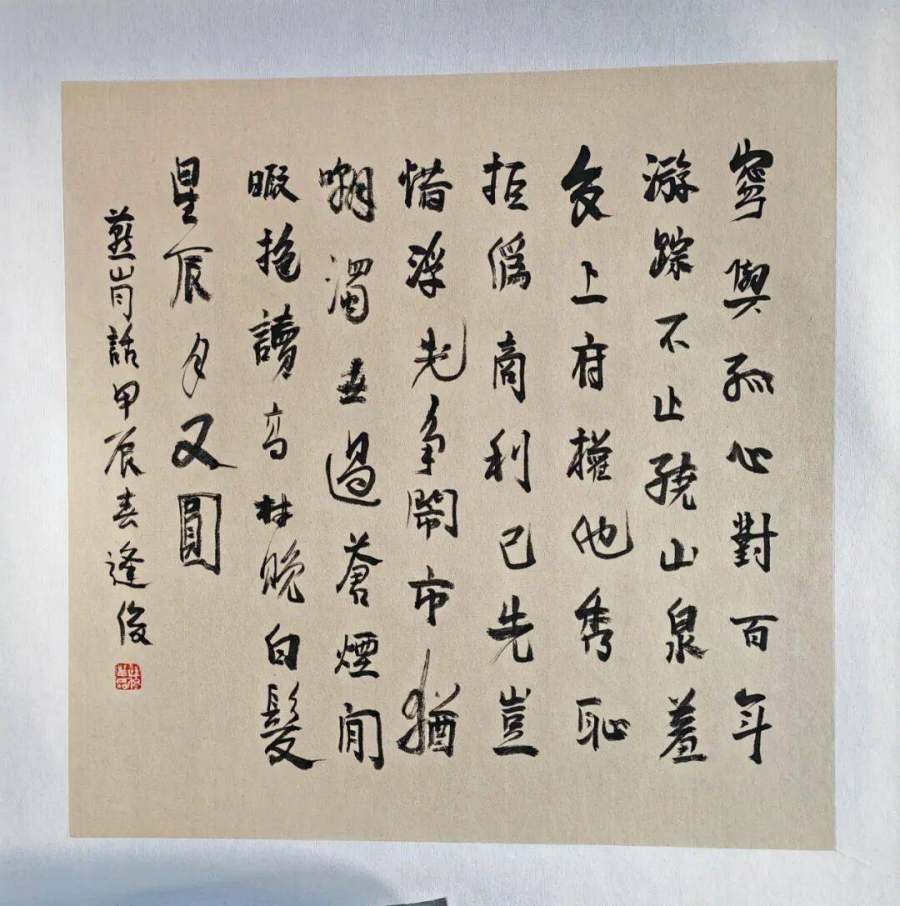 寧與孤心對百年
游踪不止繞山泉羞
上府權他秀恥
偽商利己先豈
惜浮光争鬧市猶
嘲濁世過蒼煙閒
暇抱讀高林晚白髮
星辰月又圓
燕山月話甲辰春逢俊